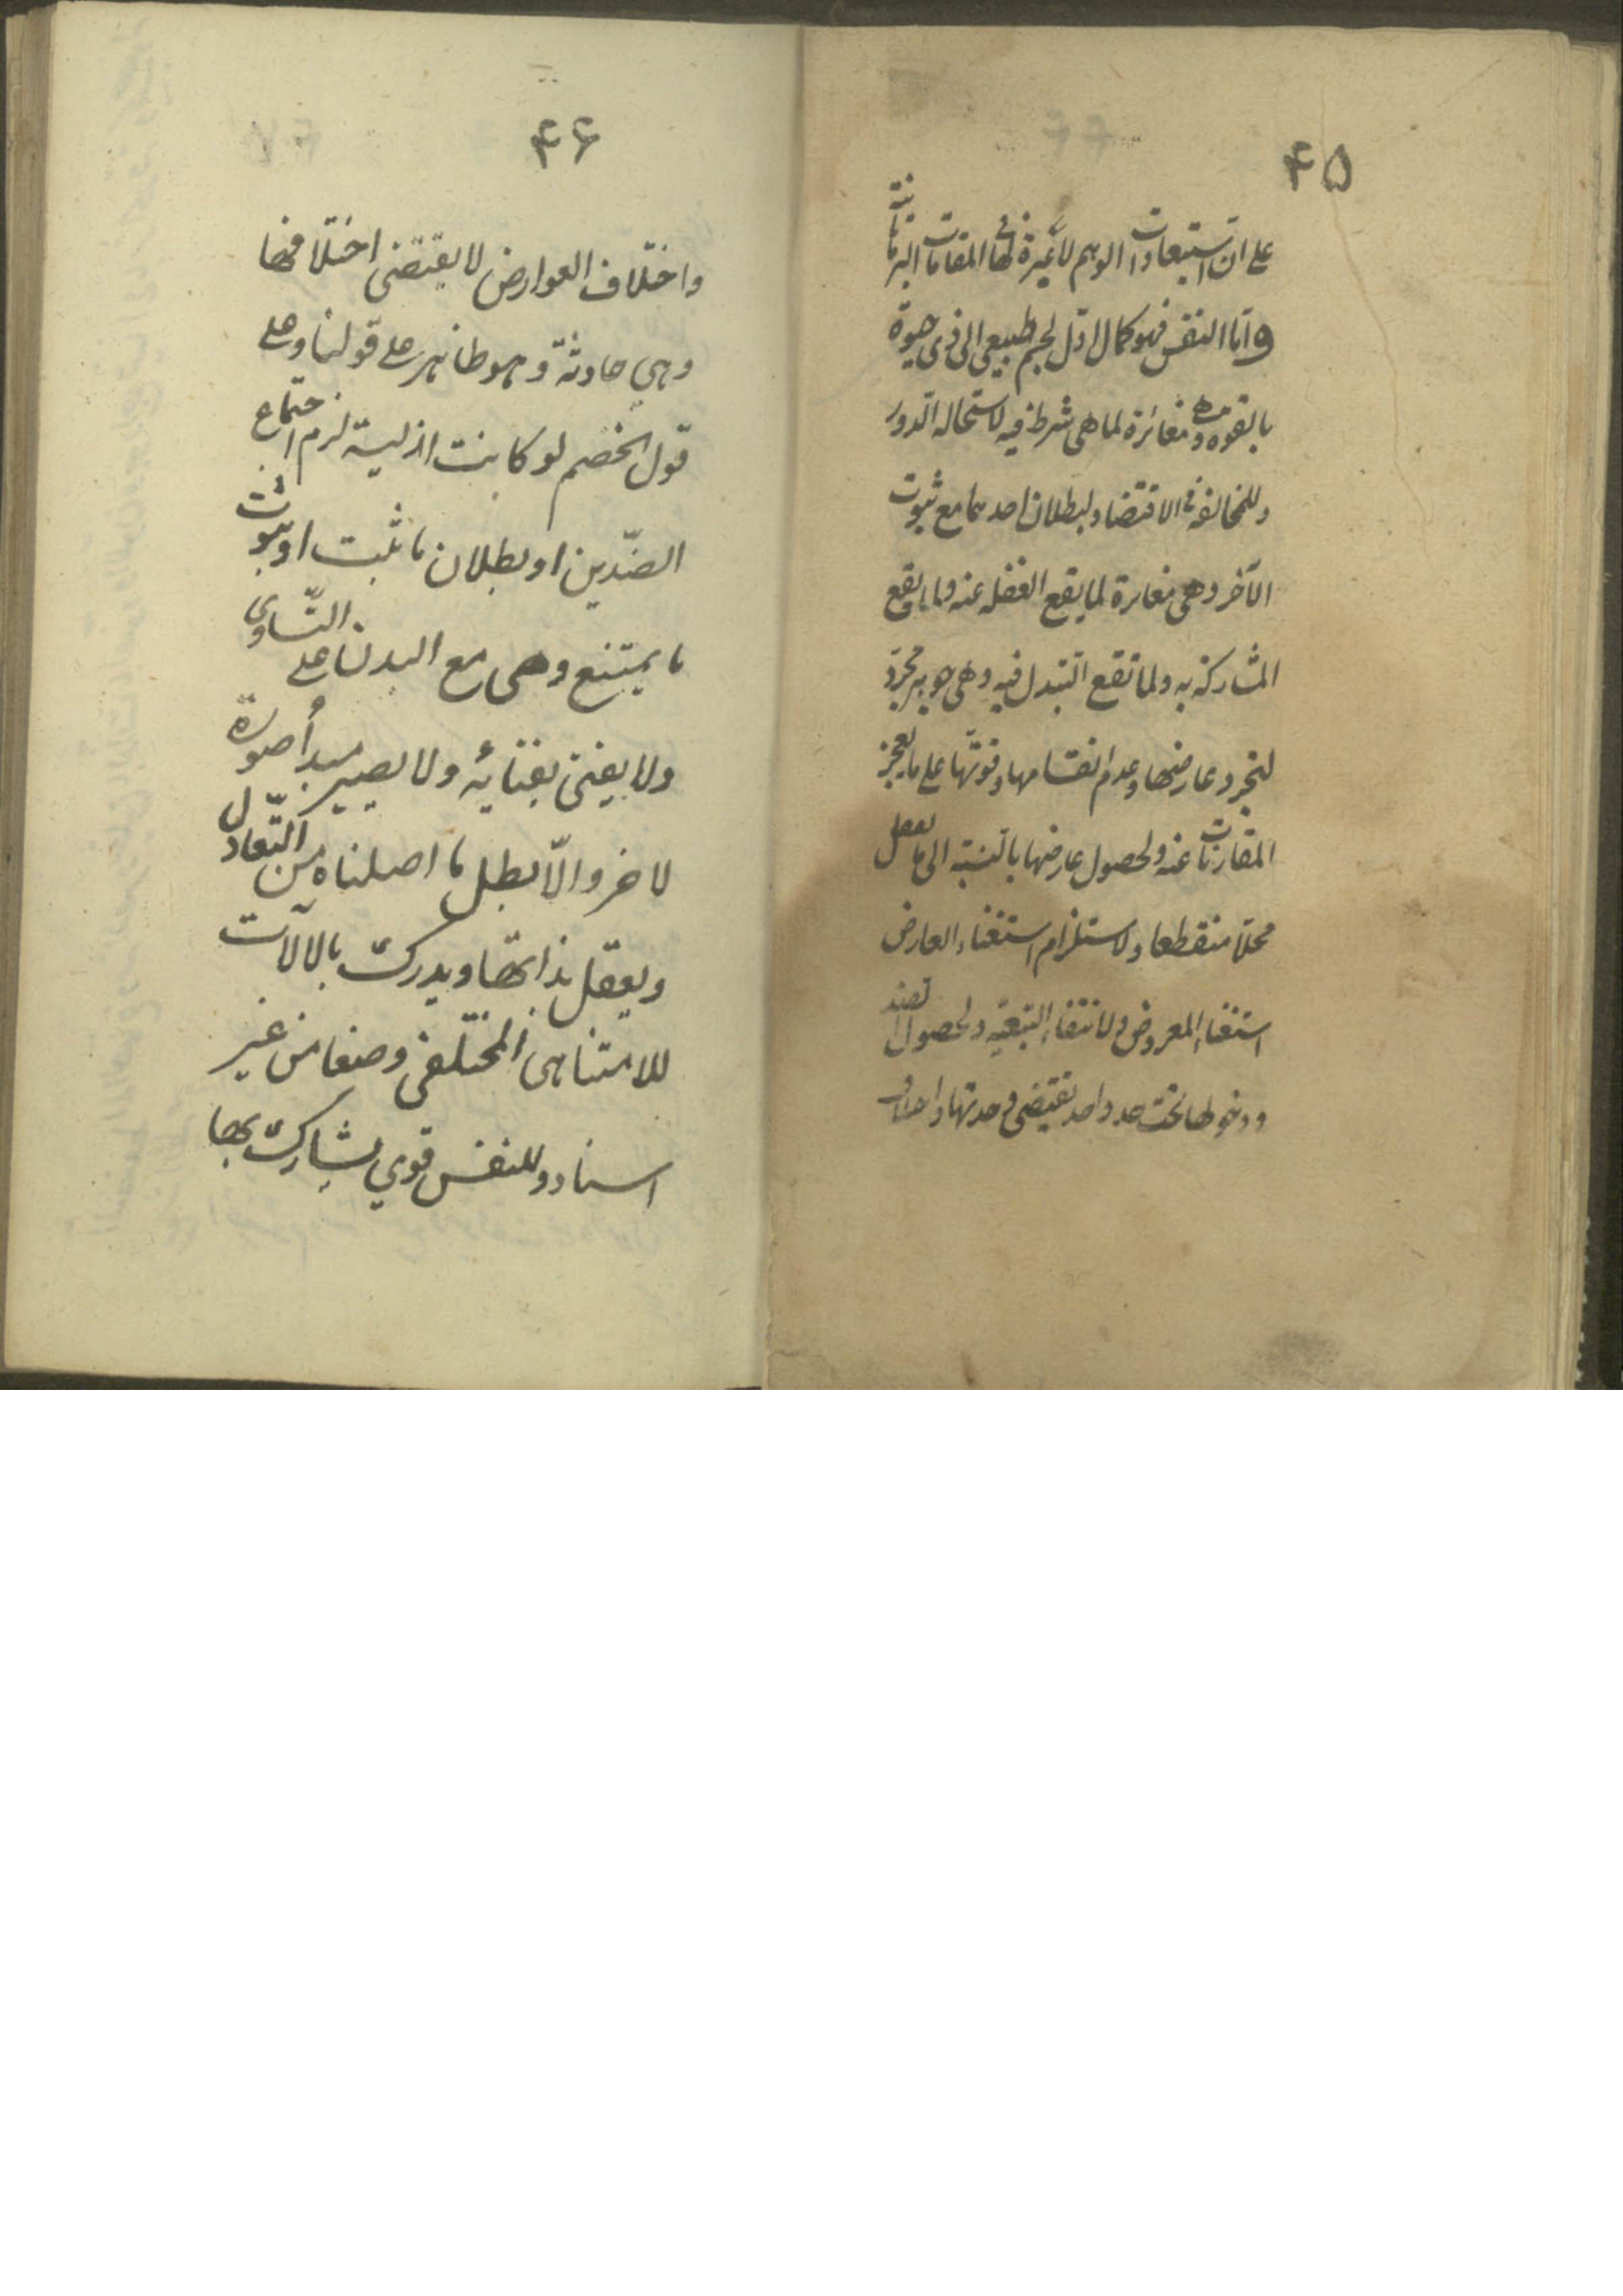 ۴۵
على ان استبعادات الوهم لا عبرة بها فى المقامات البرهانية
واما النفس فهو كمال اول لجسم طبيعى الى ذى حيوة
بالقوه وهى مغائرة لما هى شرط فيه لاستحاله الدور
وللمخالفة فى الاقتضاء ولبطلان احدهما مع ثبوت
الآخر وهى مغايرة لما يقع الغفله عنه وما يقع
المشاركة به ولما تقع التبدل فيه وهى جوهر مجرد
لتجرد عارضها وعدم انقسامها وقوتها على ما يعجز
المقارنات عنه ولحصول عارضها بالنسبة الى ما يعقل
محلا منقطعا ولاستلزام استغناء العارض
استغناء المعروض ولانتفاء التبعية ولحصول الضد
ودخولها تحت حد واحد يقتضى وحدتها واختلاف
۴۶
واختلاف العوارض لا يقتضى اختلافها
وهي حادثة وهو ظاهر على قولنا وعلى
قول الخصم لو كانت ازلية لزم اجتماع
الضدّين او بطلان ما ثبت او ثبوت
ما يمتنع وهى مع البدن على التّساوى
ولا يفنى بفنائه ولا يصير مبدأ صورة
لاخر والّا بطل ما اصلناه من التّعادل
ويعقل بذاتها ويدرك بالالآت
للامتناهى المختلفى وضعا من غير
اسناد وللنفس قوي يشارك بها